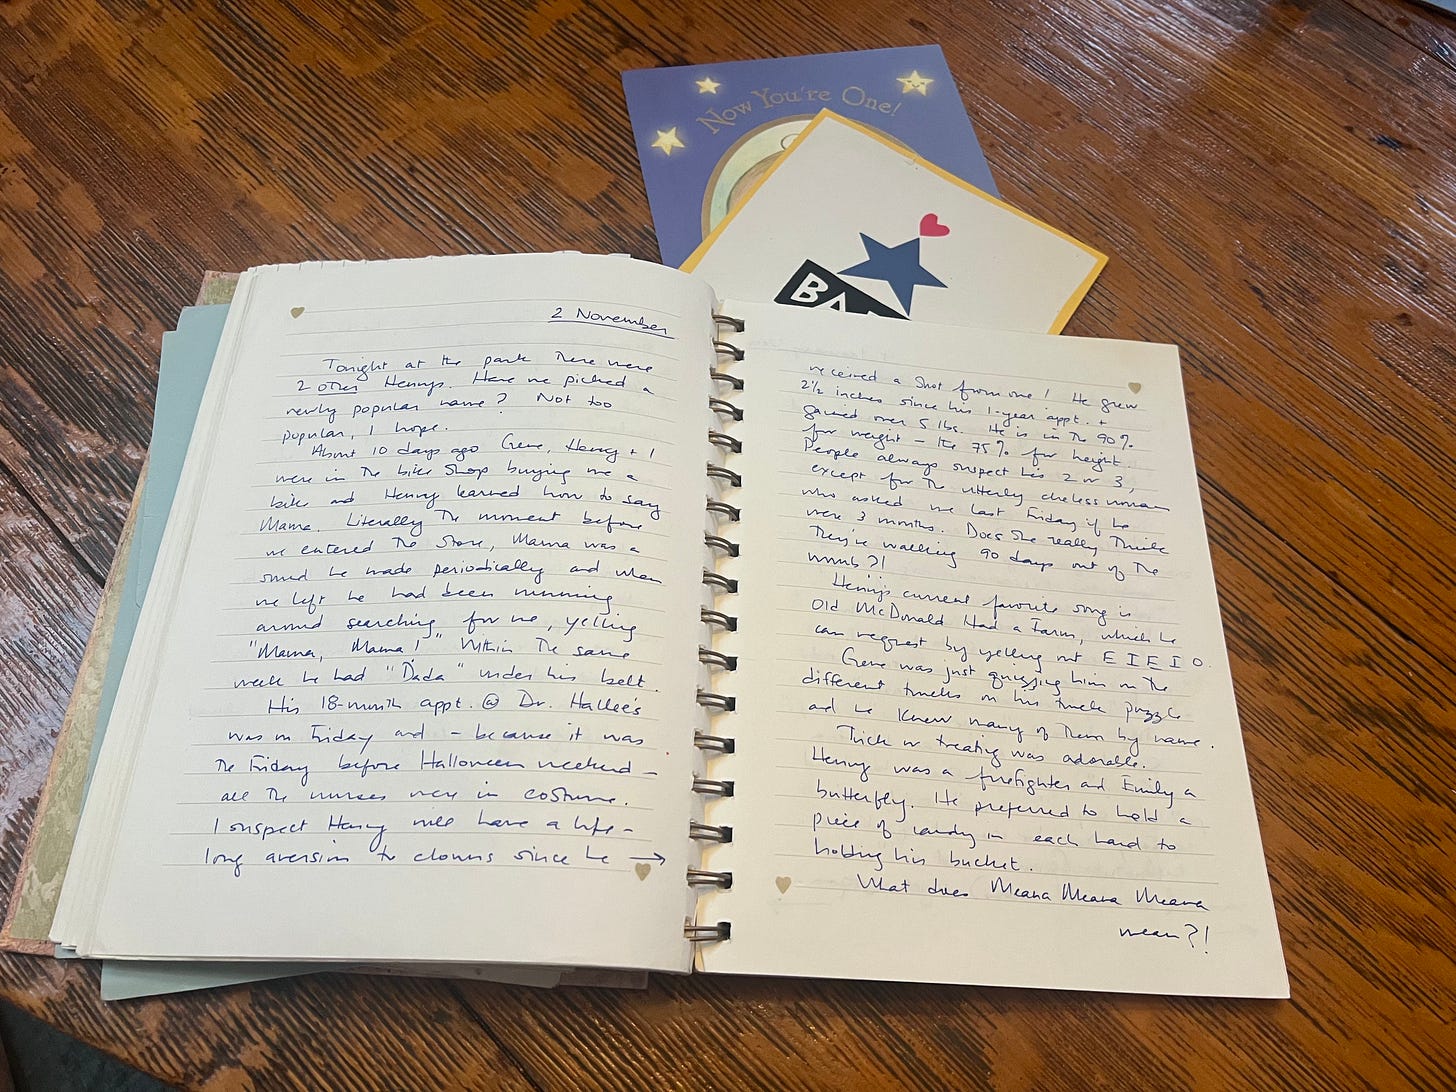 Now You're One!
BA
2 November
Tonight at the park there were
2 other Henrys. Have we picked a
newly popular name? Not too
popular, I hope.
About 10 days ago Gene, Henry + I
were in the bike shop buying me a
bike and Henry learned how to say
Mama. Literally the moment before
we entered the store, Mama was a
sound he made periodically and when
we left he had been running
around searching for me, yelling
"Mama, Mama!" Within the same
week he had "Dada" under his belt.
His 18-month appt. @ Dr. Hallee's
was on Friday and - because it was
the Friday before Halloween weekend -
all the nurses were in costume.
I suspect Henry will have a life-
long aversion to clowns since he →
received a shot from one! He grew
2½ inches since his 1-year appt. +
gained over 5 lbs. He is in the 90%
for weight - the 75% for height.
People always suspect he's 2 or 3,
except for the utterly clueless woman
who asked me last Friday if he
were 3 months. Does she really think
they're walking 90 days out of the
womb?!
Henry's current favorite song is
Old McDonald Had a Farm, which he
can request by yelling out E I E I O.
Gene was just quizzing him on the
different trucks on his truck puzzle
and he knew many of them by name.
Trick or treating was adorable.
Henry was a firefighter and Emily a
butterfly. He preferred to hold a
piece of candy in each hand to
holding his bucket.
What does Meana Meana Meana
mean?!